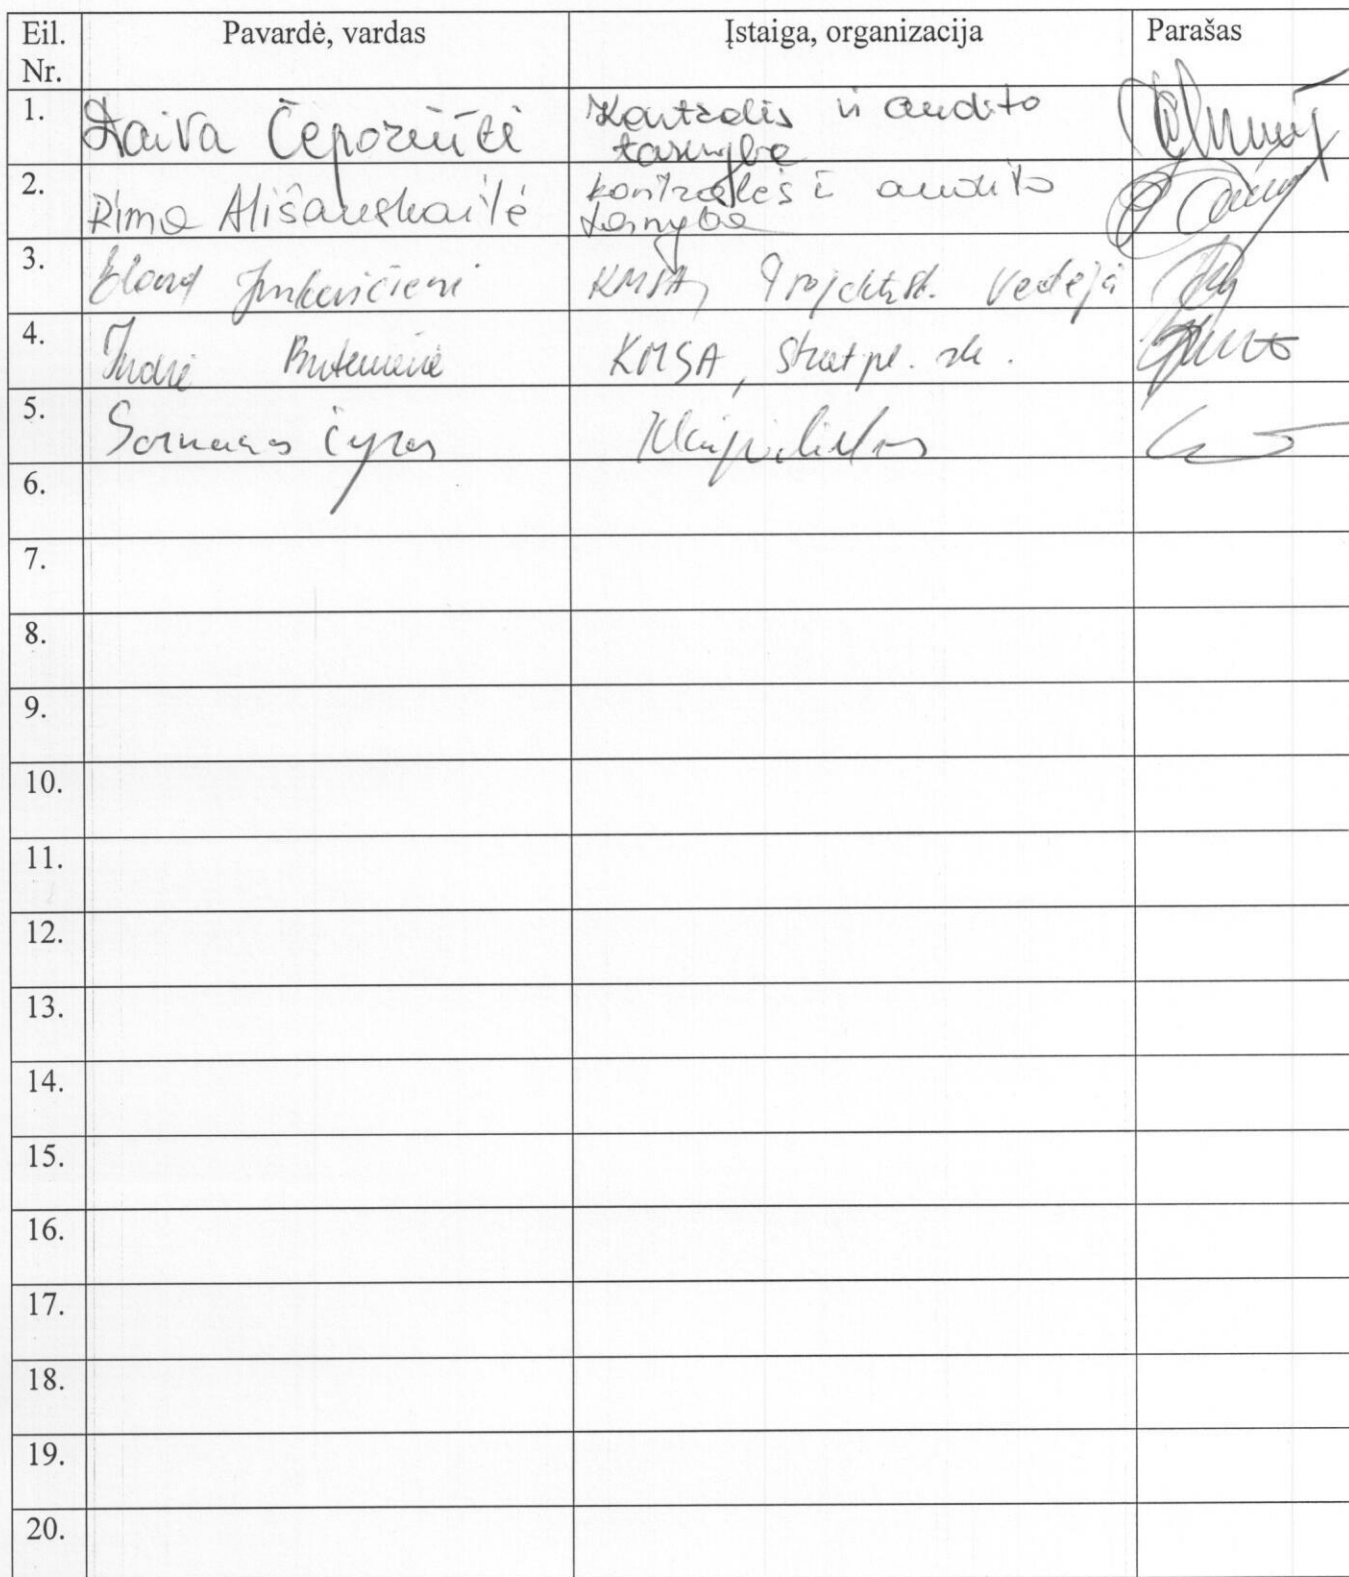 Eil. Nr. Pavardė, vardas Įstaiga, organizacija Parašas
1. Daiva Čeporiūtė Kontrolės ir audito
tarnyba
2. Rima Ališauskaitė kontrolės ir audito
tarnyba
3. Jankevičienė KMSA, Projektų sk. vedėja
4. Indrė Butenienė KMSA, Strat pl. sk.
5. Čyras
6.
7.
8.
9.
10.
11.
12.
13.
14.
15.
16.
17.
18.
19.
20.